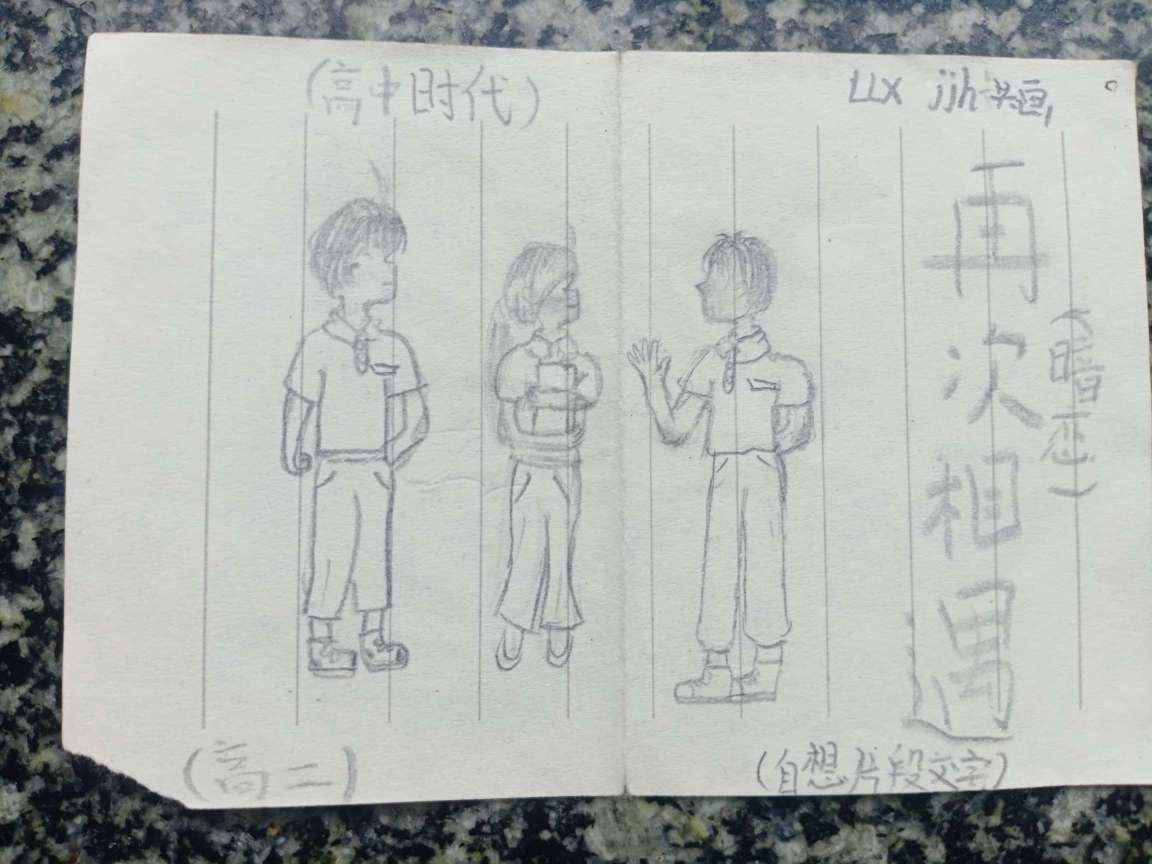 (高中时代)
LLX jjh共画
再次相遇
(暗恋)
(高二)
(自想片段文字)